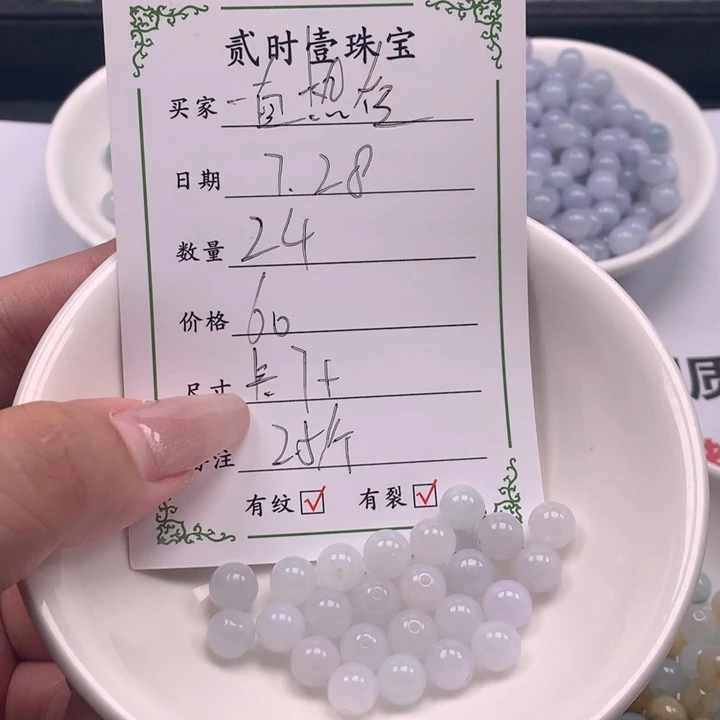 贰时壹珠宝
买家 一直热在
日期 7.28
数量 24
价格 60
尺寸 长7+
注 25个
有纹 ☑ 有裂 ☑
质